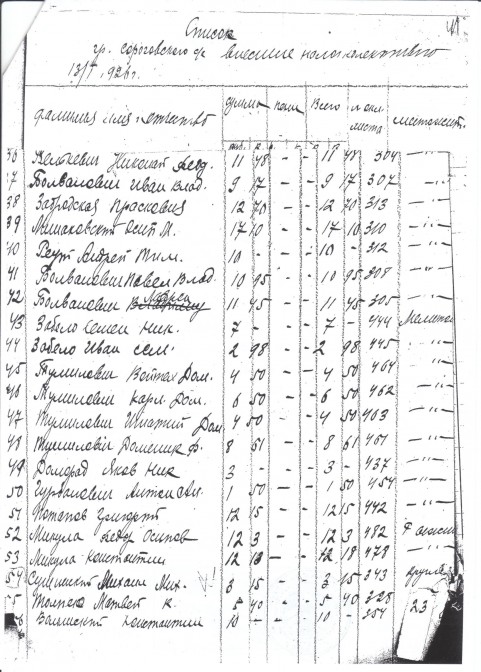 Список 41
гр. Сороговского с/с внесшие налог коллективно
13/I 1926 г.
фамилия имя и отчество сумма пени всего № окл. листа местожит.
36 Николай Фед. 11 48 - - 11 48 304 -"-
37 Болванович Иван Влад. 9 17 - - 9 17 307 -"-
38 Загродская Прасковия 12 70 - - 12 70 313 -"-
39 Осип М. 17 10 - - 17 10 310 -"-
40 Реут Андрей Тим. 10 - - - 10 - 312 -"-
41 Болванович Павел Влад. 10 95 - - 10 95 308 -"-
42 Болванович 11 45 - - 11 45 305 -"-
43 Забело Семен Ник. 7 - - - 7 - 444
44 Забело Иван Сем. 2 98 - - 2 98 445 -"-
45 Тумилович Войтех Дом. 4 50 - - 4 50 464 -"-
46 Тумилович Карл. Дом. 6 50 - - 6 50 462 -"-
47 Тумилович Игнатий Дом. 4 50 - - 4 50 463 -"-
48 Тумилович Доменик Ф. 8 61 - - 8 61 461 -"-
49 Домград Яков Ник 3 - - - 3 - 437 -"-
50 Гурванович Антон Ан. 1 50 - - 1 50 454 -"-
51 Потапов Григорий 12 15 - - 12 15 442 -"-
52 Микула Федор Осипов 12 3 - - 12 3 482
53 Микула Константин 12 18 - - 12 18 478 -"-
54 Михаил Мих. 3 15 - - 3 15 343
55 Матвей К. 5 40 - - 5 40 328 23
56 Константин 10 - - - 10 - 354